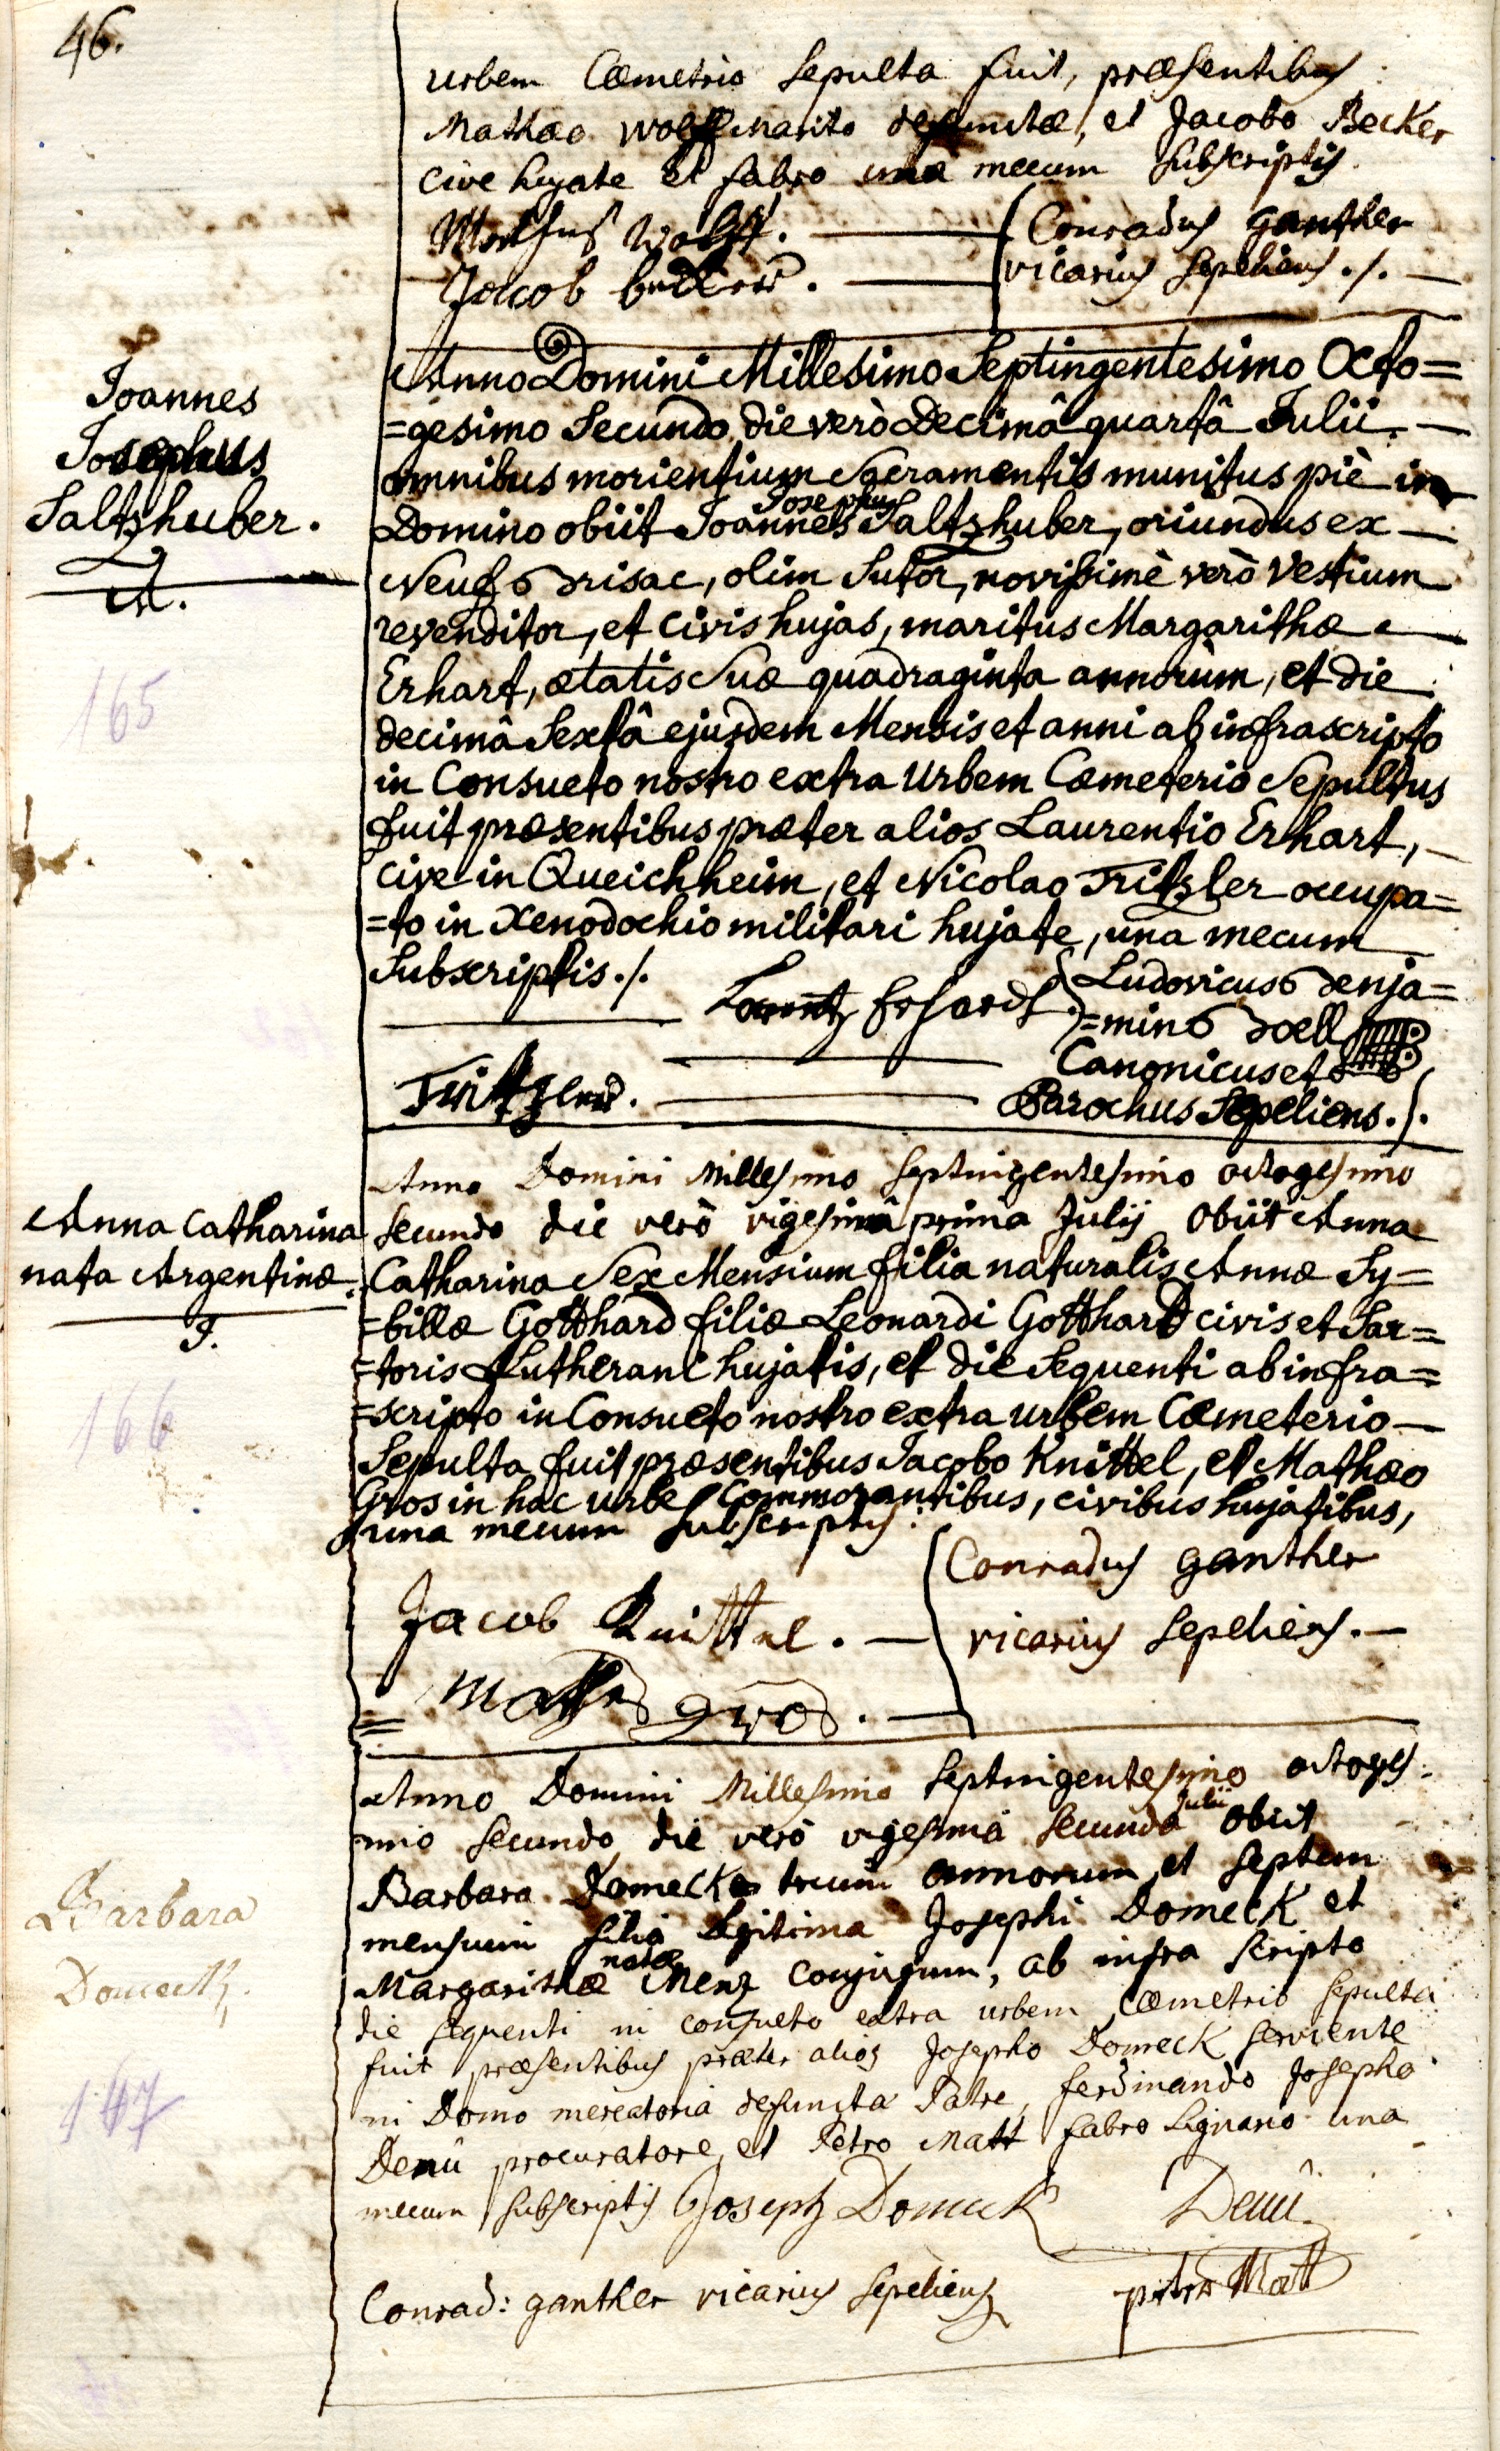 46.
urbem Cœmetrio sepulta fuit, præsentibus
Mathæo Wolff marito defunctæ, et Jacobo Becker
cive hujate et fabro una mecum subscriptis.
Wolff.
Conradus ganther
Jacob
vicarius sepeliens ./.
Joannes
Josephus
Saltzhuber.
Anno Domini Millesimo Septingentesimo Octo=
=gesimo Secundo die verò Decimâ quartâ Julii
omnibus morientium Sacramentis munitus piè in
Josephus
Domino obiit Joannes Saltzhuber, oriundus ex
Neuf Brisac, olim Sutor, novissimè verò vestium
revenditor, et civis hujas, maritus Margarithæ
Erhart, ætatis suæ quadraginta annorum, et die
decimâ Sextâ ejusdem Mensis et anni ab infrascripto
in Consueto nostro extra Urbem Cœmeterio Sepultus
fuit præsentibus præter alios Laurentio Erhart,
cive in Queichheim, et Nicolao Tritzler occupa=
=to in Xenodochio militari hujate, una mecum
Subscriptis ./.
Lorentz Erhardt
Ludovicus Benja=
=min Boell
Canonicus et
Tritzler.
Parochus Sepeliens ./.
165
Anna Catharina
nata Argentinæ.
Anno Domini Millesimo Septingentesimo octogesimo
secundo die verò vigesimâ prima Julij obiit Anna
Catharina Sex Mensium filia naturalis Annæ Sy=
=billæ Gotthard filiæ Leonardi Gotthard civis et Sar=
=toris Lutherani hujatis, et die Sequenti ab infra=
=scripto in Consueto nostro extra urbem Cœmeterio
Sepulta fuit præsentibus Jacobo Knittel, et Mathæo
Gros in hac urbe Commorantibus, civibus hujatibus,
una mecum subscriptis.
Conradus ganther
Jacob Knittel.
vicarius sepeliens.
gros.
166
Barbara
Domeck.
Anno Domini Millesimo septingentesimo octoges:
imo secundo die verò vigesima secunda Julii obiit
Barbara Domeck trium annorum et septem
mensium filia legitima Josephi Domeck et
Margarithæ natæ Menz conjugum, ab infra scripto
die sequenti in consueto extra urbem cœmetrio sepulta
fuit præsentibus præter alios Josepho Domeck serviente
in Domo mercatoria defuncta Patre, ferdinando Josepho
Demû procuratore et Petro Matt fabro lignario una
mecum subscriptis Joseph Domeck Demû
Conrad: ganther vicarius sepeliens
Matt
167